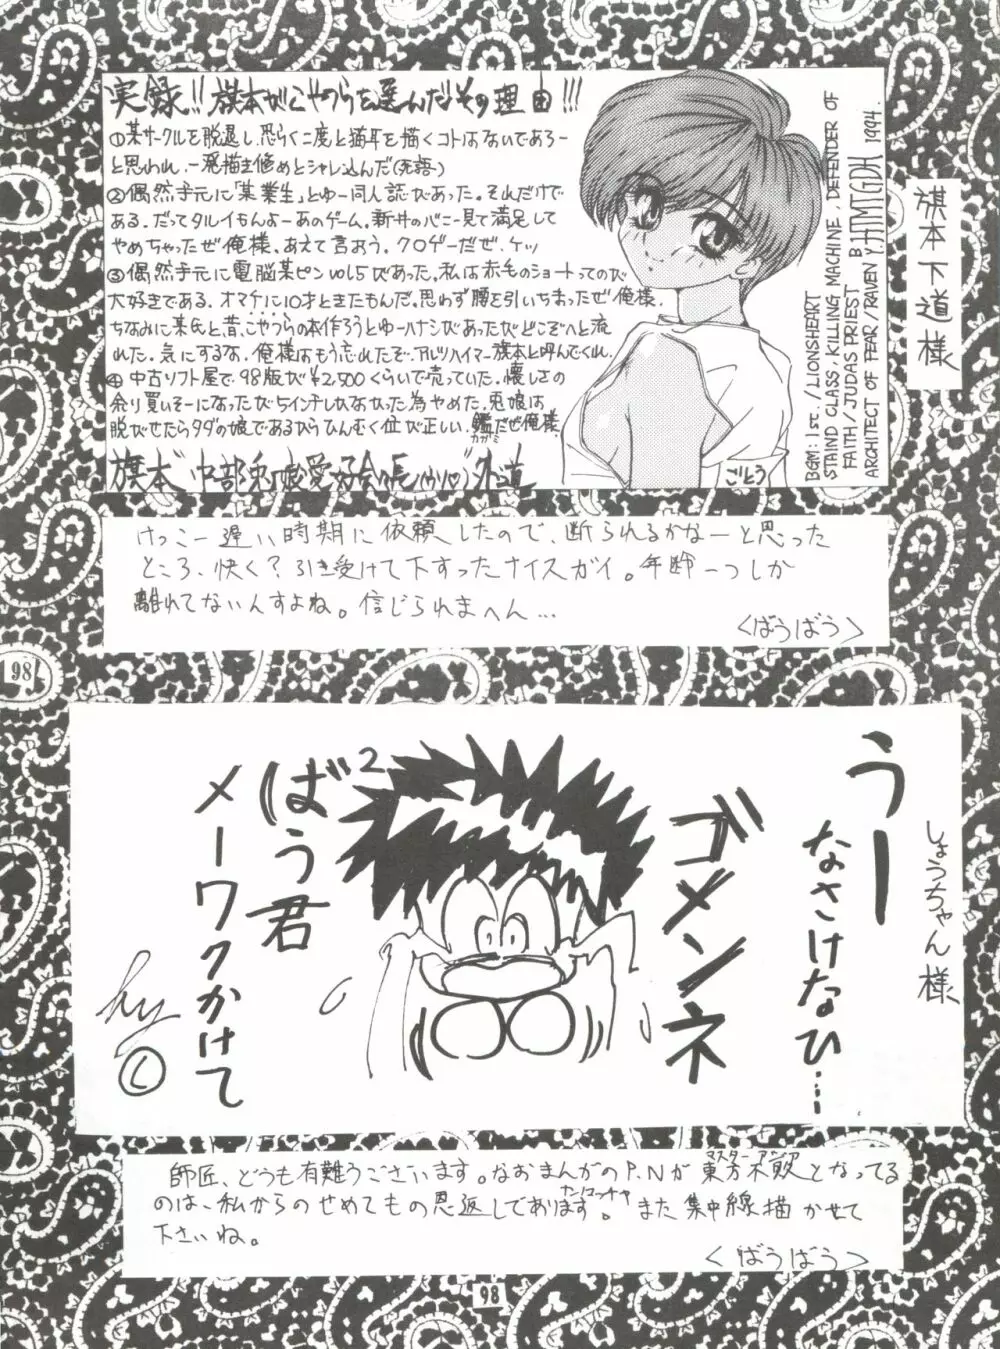 実録!!旗本がこやつらを選んだその理由!!!
①某サークルを脱退し、恐らく二度と猫耳を描くコトはないであろー
と思われ、一発描き修めとシャレ込んだ(死語)
②偶然手元に「某業生」とゆー同人誌があった。それだけで
ある。だってタルイもんよーあのゲーム。新井のバニー見て満足して
やめちゃったぜ俺様、あえて言おう、クロゲーだぜ、ケッ
③偶然手元に電脳某ピンvol5があった。私は赤毛のショートってのが
大好きである。オマケに10才ときたもんだ。思わず腰を引いちまったぜ俺様、
ちなみに某氏と昔、こやつらの本作ろうとゆーハナシがあったがどこぞへと流
れた。気にするな、俺様はもう忘れたぞ、アルツハイマー旗本と呼んでくれ、
④中古ソフト屋で98版が¥2,500くらいで売っていた。懐しさの
余り買いそーになったが5インチしかなかった為やめた。兎娘は
脱がせたらタダの娘であるからひんむく位が正しい、鑑だぜ俺様、
カガミ
旗本 中部兎娘愛好会々長 外道
ごとう
BGM:1st./LIONSHEART
STAND CLASS KILLING MACHINE DEFENDER OF
FAITH/JUDAS PRIEST
ARCHITECT OF FEAR/RAVEN
1994.
旗本下道様
けっこー遅い時期に依頼したので、断られるかなーと思った
ところ、快く?引き受けて下すったナイスガイ。年齢一つしか
離れてないんすよね。信じられまへん…
<ばうばう>
98
しょうちゃん様
うー
なさけなひ…
ゴメンネ
ばう²君
メーワクかけて
hy
©
師匠、どうも有難うございます。なおまんがのP.Nが東方不敗となってる
マスターアジア
のは、私からのせめてもの恩返しであります。また集中線描かせて
ナンローチャ
下さいね。
<ばうばう>
98